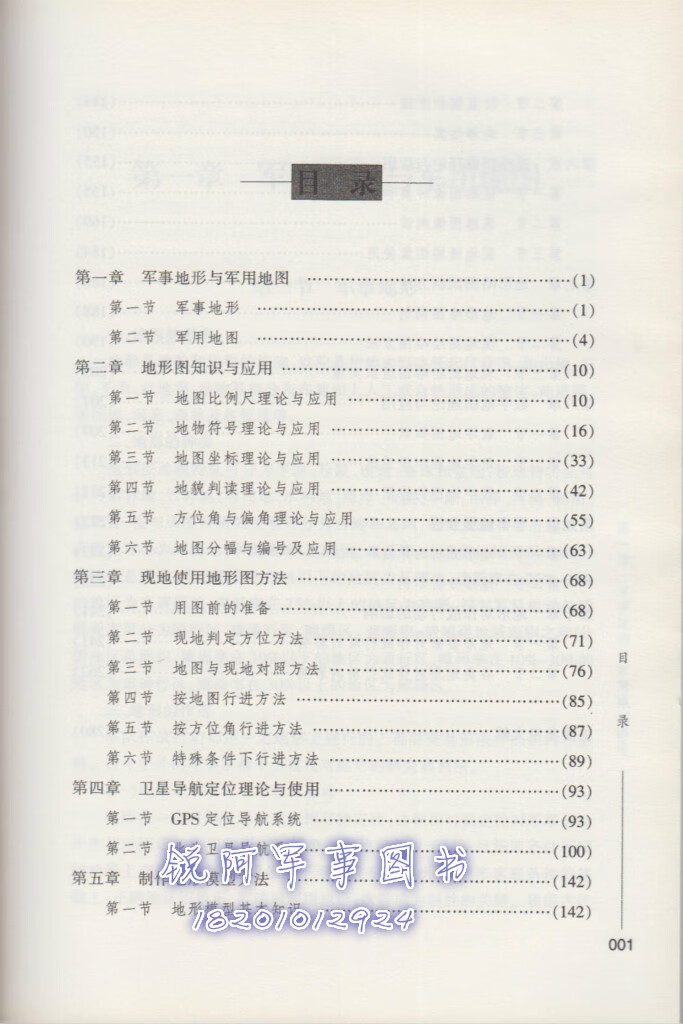 目 录
第一章 军事地形与军用地图 ……………………………(1)
第一节 军事地形 ……………………………(1)
第二节 军用地图 ……………………………(4)
第二章 地形图知识与应用 ……………………………(10)
第一节 地图比例尺理论与应用 ……………………………(10)
第二节 地物符号理论与应用 ……………………………(16)
第三节 地图坐标理论与应用 ……………………………(33)
第四节 地貌判读理论与应用 ……………………………(42)
第五节 方位角与偏角理论与应用 ……………………………(55)
第六节 地图分幅与编号及应用 ……………………………(63)
第三章 现地使用地形图方法 ……………………………(68)
第一节 用图前的准备 ……………………………(68)
第二节 现地判定方位方法 ……………………………(71)
第三节 地图与现地对照方法 ……………………………(76)
第四节 按地图行进方法 ……………………………(85)
第五节 按方位角行进方法 ……………………………(87)
第六节 特殊条件下行进方法 ……………………………(89)
第四章 卫星导航定位理论与使用 ……………………………(93)
第一节 GPS定位导航系统 ……………………………(93)
第二节 卫星导航 ……………………………(100)
锐阿军事图书
第五章 制作 模型方法 ……………………………(142)
第一节 地形模型基本知识 ……………………………(142)
18201012924
目录
001